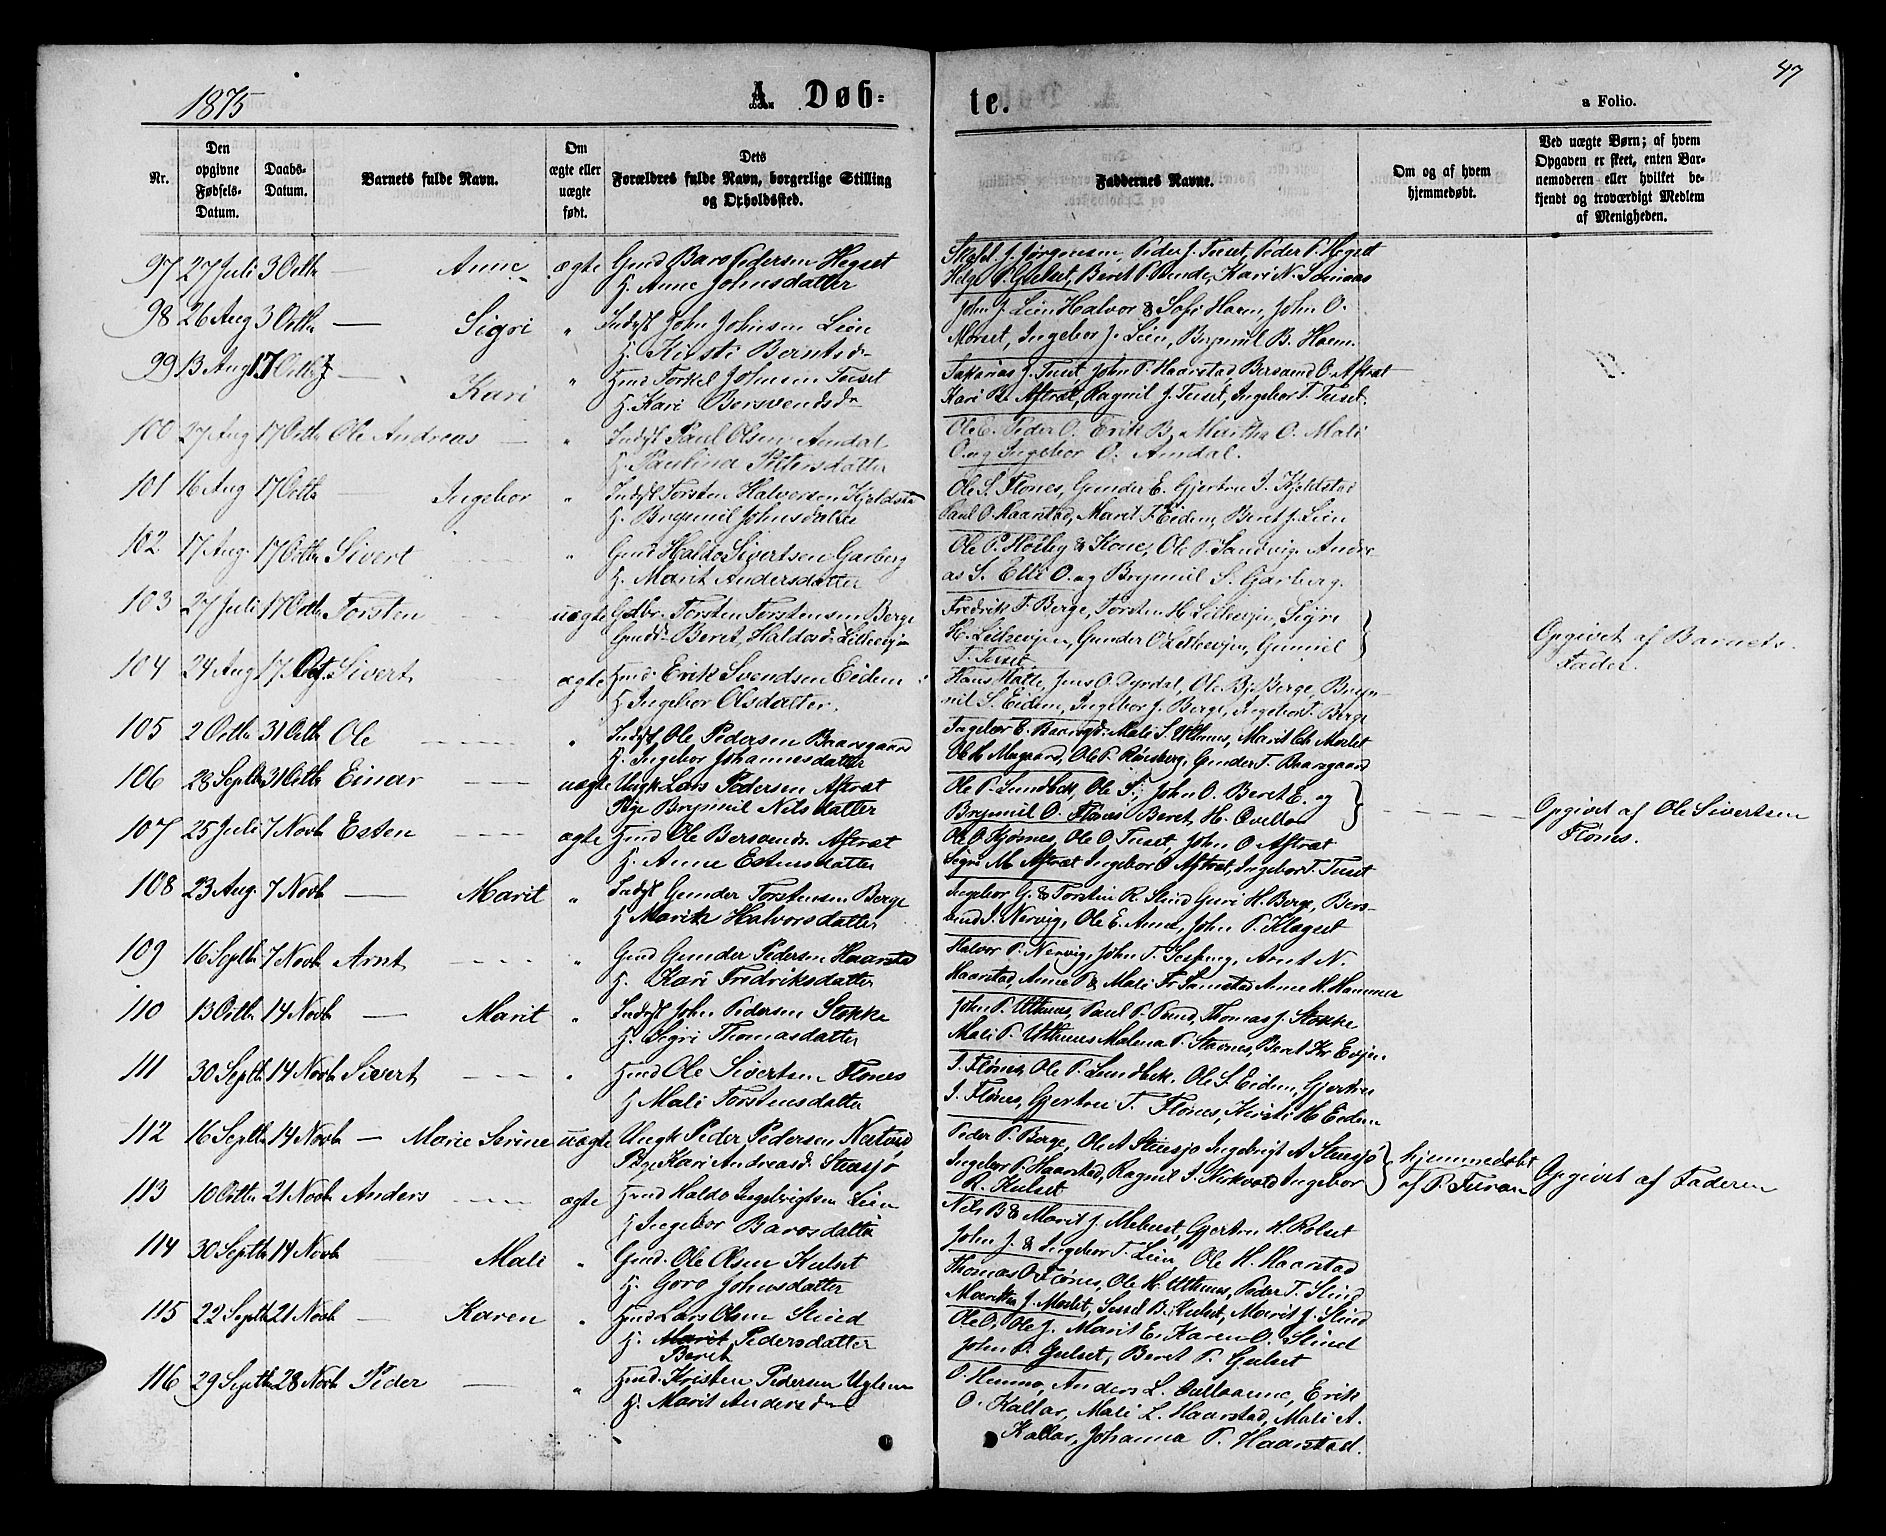 1875
A. Døb=
te.
a Folio.
47
Nr.
Den opgivne Fødsels-Datum.
Daabs-Datum.
Barnets fulde Navn.
Om ægte eller uægte født.
Dets Forældres fulde Navn, borgerlige Stilling og Opholdssted.
Faddernes Navne.
Om og af hvem hjemmedøbt.
Ved uægte Børn; af hvem Opgaven er skeet, enten Barnemoderen eller hvilket bekjendt og troværdigt Medlem af Menigheden.
97 27 Juli 3 Octbr — Anne ægte Gmd Baro Pedersen Hegset
H. Anne Johnsdatter
J. Jørgensen, Peder J. Tuset, Peder P. Hegset
Helge P. Gulset, Beret P. Kari N.
98 26 Aug 3 Octbr — Sigri " Indst John Johnsen Lien
H. Kirsti Berntsdr
John J. Lien Halvor & Sofi Haem, John O.
Moset, Ingebor J. Lien, Brynnil B. Haem.
99 13 Aug 17 Octbr — Kari " Hmd Torkel Johnsen Tuset
H. Kari Bersvendsdr
Sakarias J. Tuset, John P. Haarstad Bersvend O. Aftret
Kari B. Aftret, Ragnil J. Tuset, Ingebor T. Tuset.
100 27 Aug 17 Octbr Ole Andreas — " Indst Paul Olsen Amdal
H. Paulina Pettersdatter
Ole E. Peder O. Erik B. Maritha O. Mali
O. og Ingebor O. Amdal.
101 16 Aug 17 Octbr — Ingebor " Indst Torsten Halvorsen Kjeldstad
H. Brynnil Johnsdatter
Ole S. Flønes, Gunder E. Gjertru I. Kjeldstad
Paul O. Haarstad, Marit T. Eidem, Beret J. Lien
102 17 Aug. 17 Octbr Sivert — " Gmd Haldo Sivertsen Garberg
H. Marit Andersdatter
Ole P. Høiby & Kone, Ole P. Sandvig, Andre
as S. Elli O. og Brynnil S. Garberg.
103 27 Juli 17 Octbr Torsten — uægte Gdbr. Torsten Torstensen Berge
Gmdd. Beret Haldosd. Litlevjen
Fredrik T. Berge, Torsten H. Litlevjen, Sigri
H. Litlevjen, Gunder O. Litlevjen, Gunnil
T. Tuset
Opgivet af Barnets
Fader.
104 24 Aug 17. Oct. Sivert — ægte Hmd. Erik Svendsen Eidem
H Ingebor Olsdatter.
Hans Møtte, Jens O. Dyrdal, Ole Bj. Berge, Bryn-
nil S. Eidem, Ingebor J. Berge, Ingebor T. Berge
105 2 Octbr 31 Octbr Ole — " Indst Ole Pedersen Baarsgaard
H. Ingebor Johannesdatter
Ingebor E. Baarsgd. Mali S. Uthuus, Marit Ch. Moslet
Ole H. Møgaard, Ole P. Rønsberg, Gunder T. Baarsgaard
106 28 Septbr 31 Octbr Einar — uægte Ungk Lars Pedersen Aftret
Pige Brynnil Nilsdatter
Ole P. Lundbek, Ole S., John O. Beret E. og
Brynnil O. Flønes Beret H. Evello
Opgivet af Ole Sivertsen
Flønes.
107 25 Juli 7 Novb Esten — ægte Hmd Ole Bersvends. Aftret
H. Anne Estensdatter
Ole O. Kjøsnes, Ole O. Tuset, John O. Aftret
Sigri M. Aftret Ingebor O. Aftret, Ingebor T. Tuset
108 23 Aug. 7 Novb — Marit " Indst Gunder Torstensen Berge
H Marit Halvorsdatter
Ingebor G. & Torstin R. Slind Guri H. Berge, Bers-
vend I. Nervig, Ole E. Anne, John P. Klegset
109 16 Septbr 7 Novb Arnt — " Gmd Gunder Pedersen Haarstad
H. Kari Fredriksdatter
Halvor P. Nervig, John T. Sesseng, Arnt N.
Haarstad, Anne P. & Mali Fr. Samstad Anne H. Hammer
110 13 Octbr 14 Novb — Marit " Indst John Pedersen Stokke
H. Sigri Thomasdatter
John P. Uthuus, Paul P. Rand, Thomas J. Stokke
Mali P. Uthuus Malena P. Stavnes, Beret Kr. Evjen
111 30 Septbr 14 Novb Sivert — " Hmd Ole Sivertsen Flønes
H Mali Torstensdatter
I. Flønes, Ole P. Lundbek, Ole S. Eidem, Gjertru
I. Flønes, Gjertru T. Flønes, Kirsti H. Eidem
112 16 Septbr 14 Novb — Marie Serine uægte Ungk Peder Pedersen Nervig
Pige Kari Andreasd. Stensjø
Peder P. Berge, Ole A Stensjø Ingebrigt A Stensjø
Ingebor P. Haarstad, Ragnil I. Kirkvold Ingebor
R. Kulset
hjemmedøbt
af P. Furan
Opgivet af Faderen
113 10 Octbr 21 Novb Anders — ægte Hmd Haldo Ingebrigtsen Lien
H Ingebor Barosdatter
Nils B & Marit J. Mebust, Gjertru H. Rolset
John J. & Ingebor T. Lien, Ole H. Haarstad
114 30 Septbr 14 Novb Mali " Gmd. Ole Olsen Kulset
H. Goro Johnsdatter
Thomas O. Flønes, Ole H. Uthuus, Peder T. Slind
Marithe J. Moslet, Sessel B. Kulset, Marit J. Slind
115 22 Septbr 21 Novb — Karen " Hmd Lars Olsen Slind
H. Marit Pedersdatter
Beret
Ole O., Ole J. Marit E. Karen O. Slind
John P. Gulset, Beret P. Gulset
116 29 Septbr 28 Novb Peder — " Hmd. Kristen Pedersen Uglem
H. Marit Andersdr
O. Hammer, Anders L. Erik
O. Kallar, Mali L. Haarstad, Mali A.
Kallar, Johanna P. Haarstad.